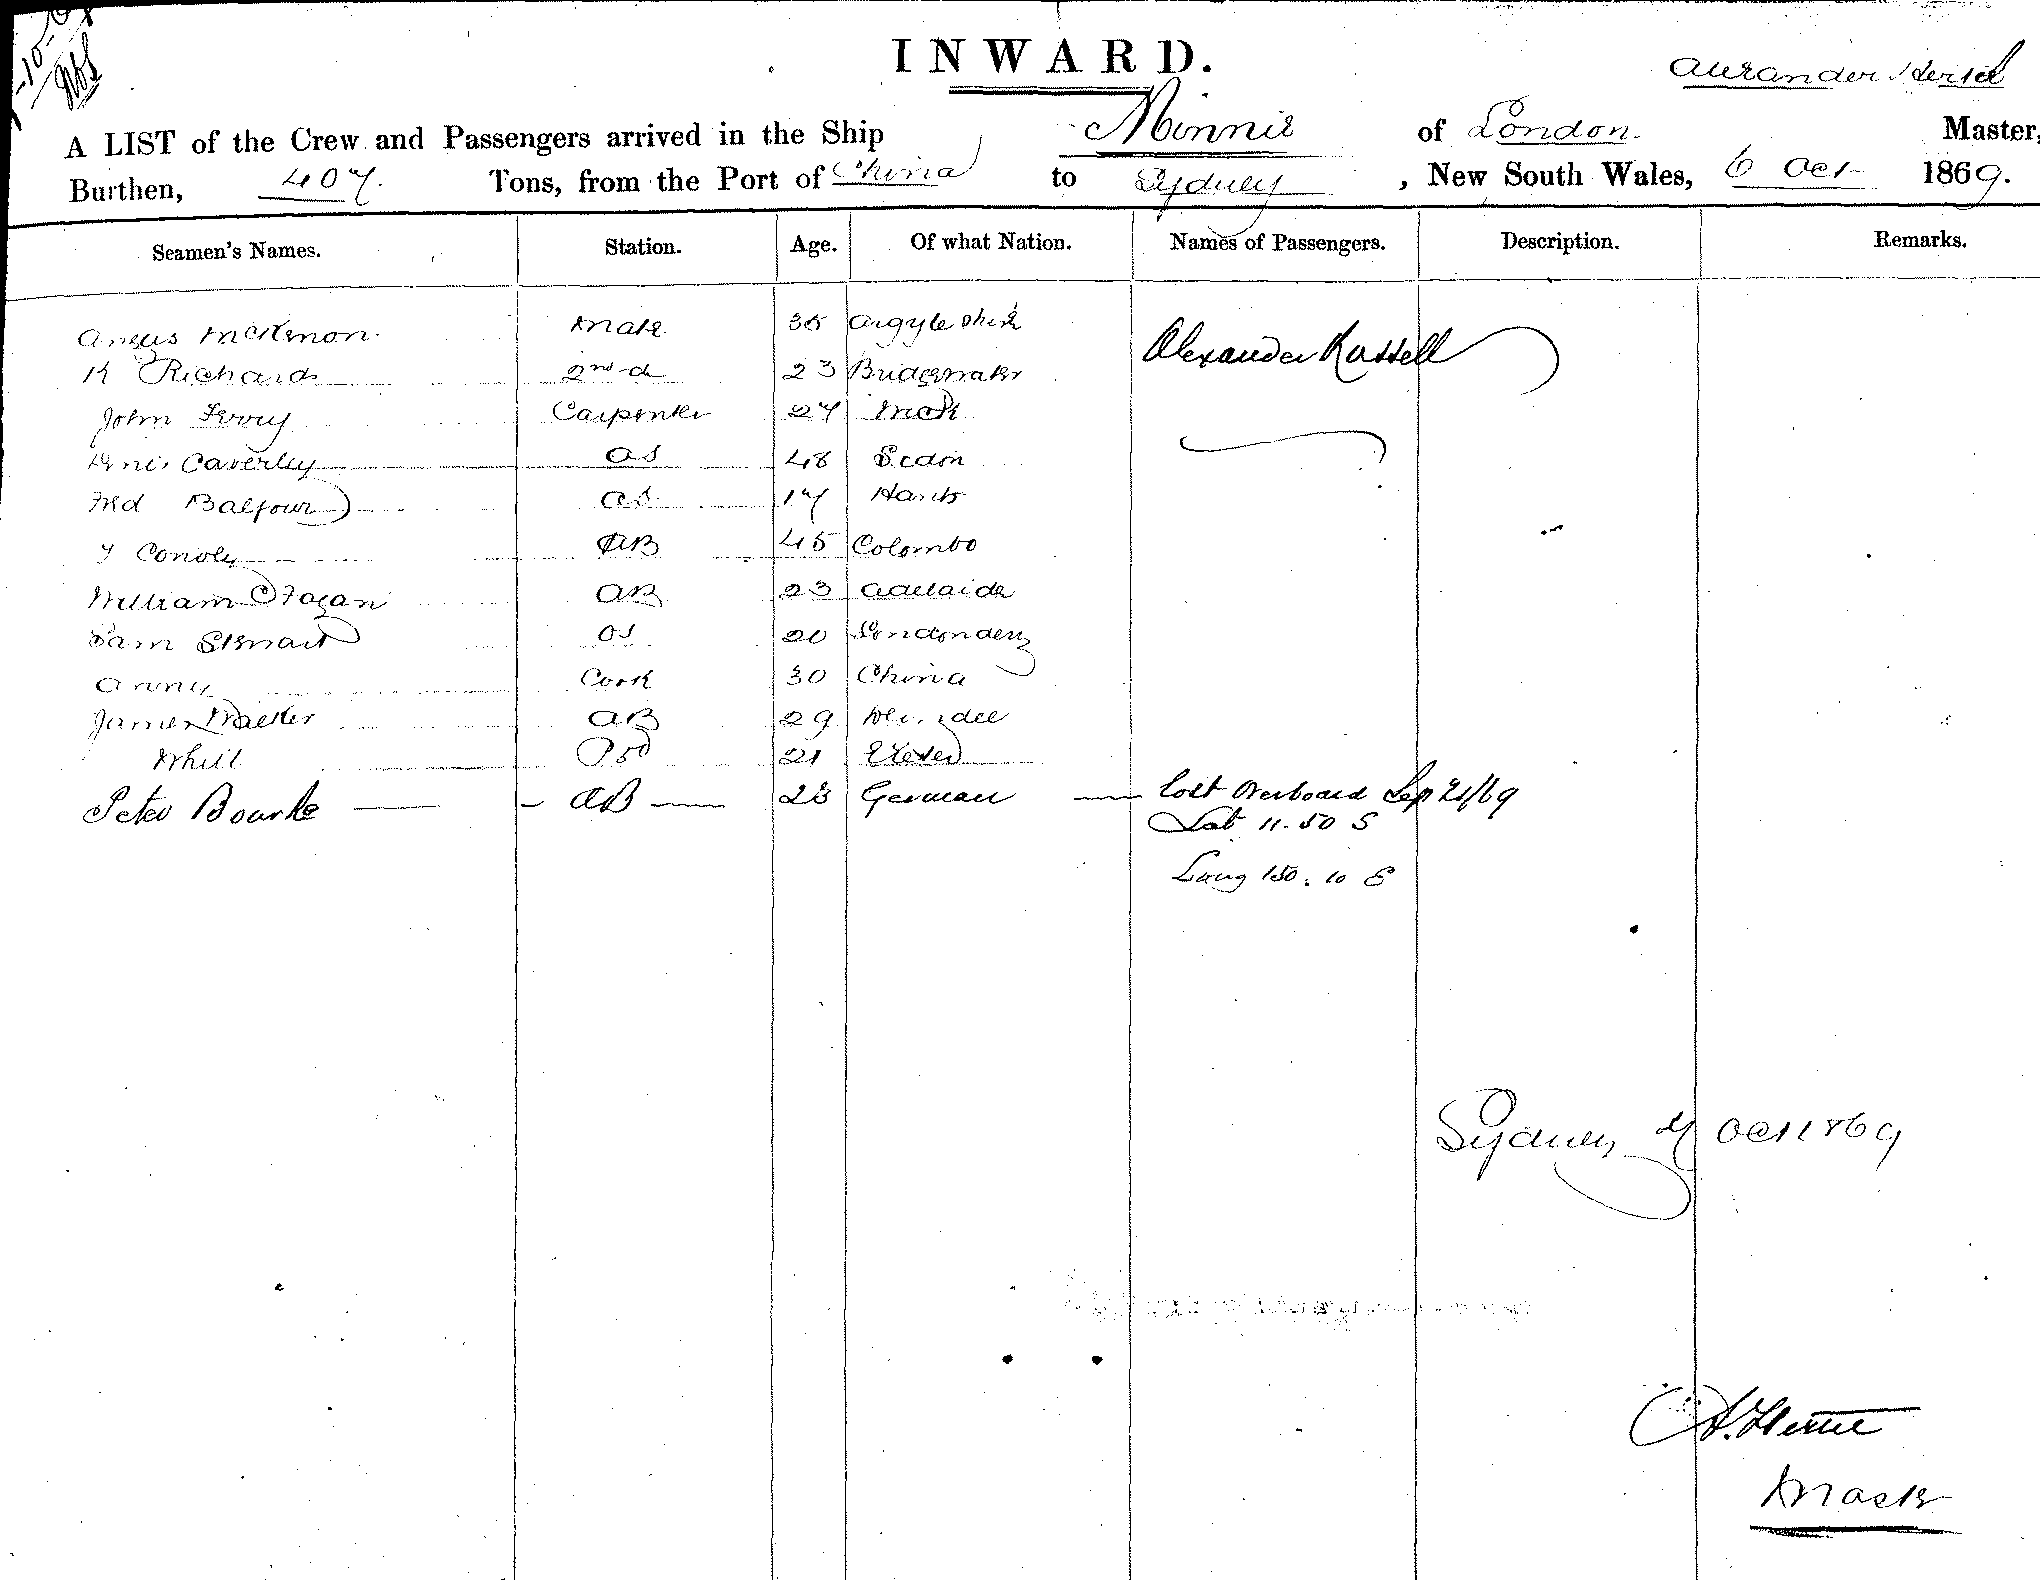 INWARD.
Alexander
A LIST of the Crew and Passengers arrived in the Ship Minnie of London Master,
Burthen, 407 Tons, from the Port of China to Sydney, New South Wales, 6 Oct 1869.
Seamen's Names. Station. Age. Of what Nation. Names of Passengers. Description. Remarks.
Angus McKinon Mate 35 Argyleshire Alexander Russell
R Richards 2nd 23 Bridgewater
John Carpenter 27
Caverley OS 48
Fred Balfour OS 17 Hants
Conoly AB 45 Colombo
William Fagan AB 23 Adelaide
Sam Stewart OS 20 Londonderry
Cook 30 China
James Walker AB 29 Dundee
21 Exeter
Peter Bourke AB 28 German lost overboard Sep 21/69
Lat 11.50 S
Long 150.10 E
Sydney 7 Oct 1869
Master